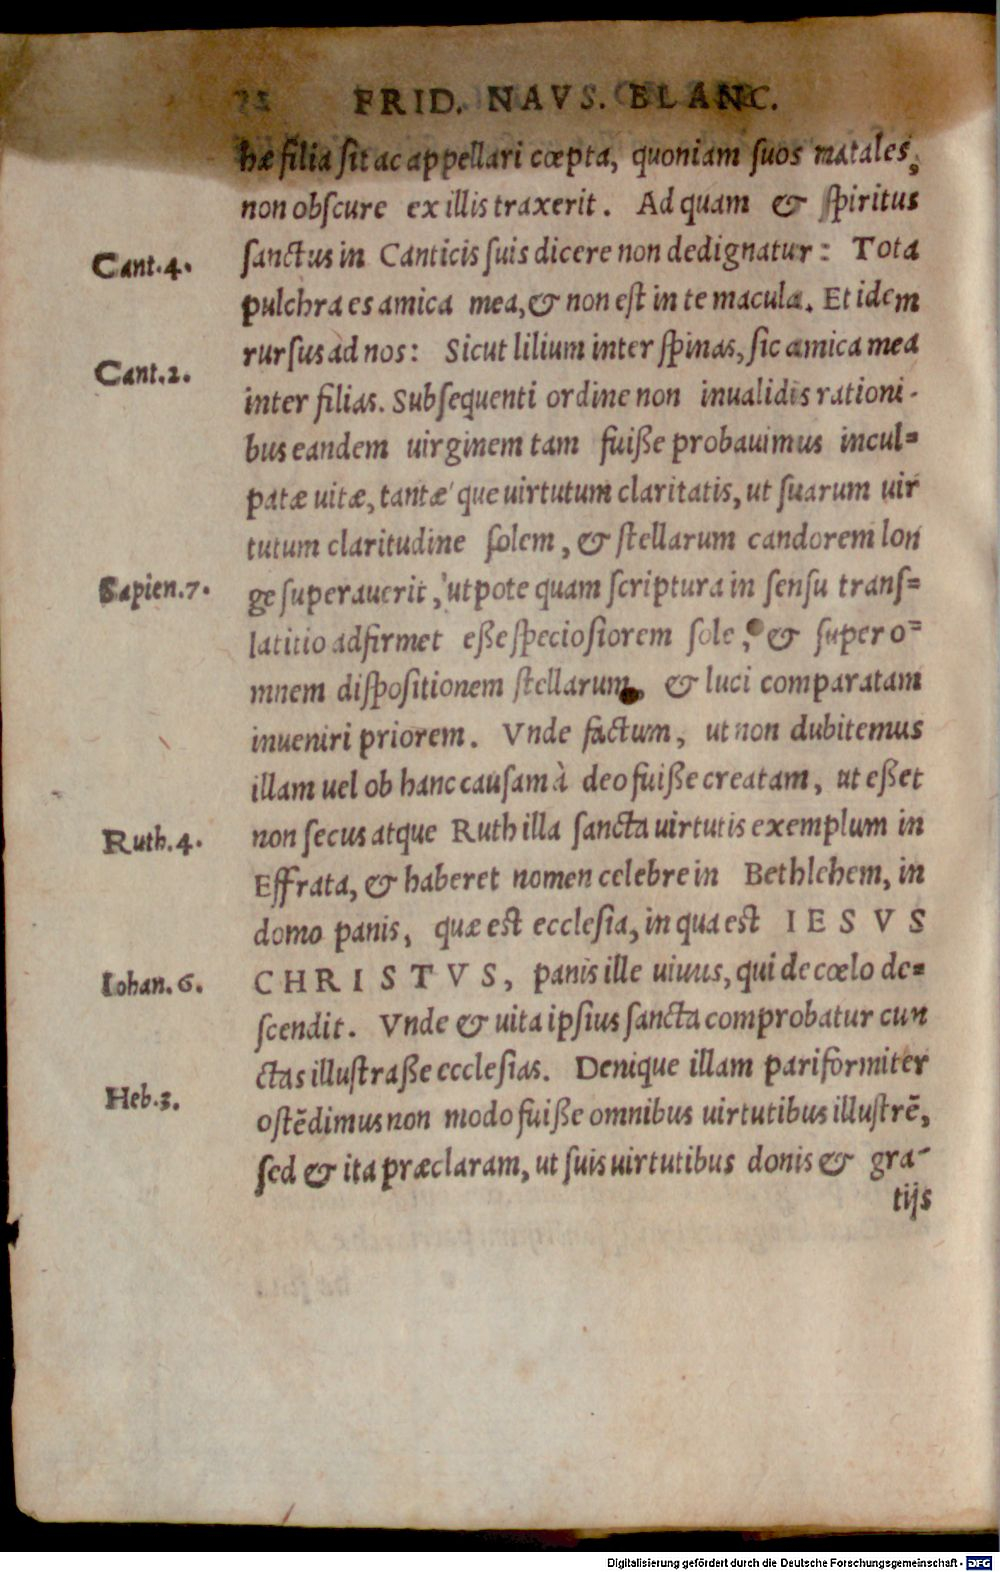 FRID. NAVS. BLANC.
hæ filia ſit ac appellari cœpta, quoniam ſuos natales,
non obſcure ex illis traxerit. Ad quam & ſpiritus
ſanctus in Canticis ſuis dicere non dedignatur: Tota
Cant.4.
pulchra es amica mea, & non eſt in te macula. Et idem
rurſus ad nos: Sicut lilium inter ſpinas, ſic amica mea
Cant.2.
inter filias. Subſequenti ordine non inualidis rationi-
bus eandem uirginem tam fuiße probauimus incul=
patæ uitæ, tantæ que uirtutum claritatis, ut ſuarum uir
tutum claritudine ſolem, & ſtellarum candorem lon
ge ſuperauerit, utpote quam ſcriptura in ſenſu tranſ=
Sapien.7.
latitio adfirmet eße ſpecioſiorem ſole, & ſuper o=
mnem diſpoſitionem ſtellarum, & luci comparatam
inueniri priorem. Vnde factum, ut non dubitemus
illam uel ob hanc cauſam à deo fuiße creatam, ut eßet
non ſecus atque Ruth illa ſancta uirtutis exemplum in
Ruth.4.
Effrata, & haberet nomen celebre in Bethlehem, in
domo panis, quæ eſt eccleſia, in qua eſt IESVS
CHRISTVS, panis ille uiuus, qui de cœlo de=
Iohan.6.
ſcendit. Vnde & uita ipſius ſancta comprobatur cun
ctas illuſtraße eccleſias. Denique illam pariformiter
Heb.3.
oſtēdimus non modo fuiße omnibus uirtutibus illuſtrē,
ſed & ita præclaram, ut ſuis uirtutibus donis & gra-
tijs
Digitalisierung gefördert durch die Deutsche Forschungsgemeinschaft - DFG